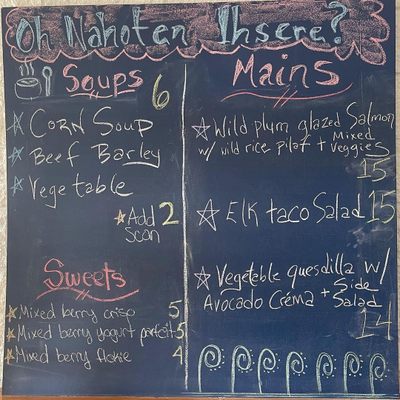 Oh Nahoten Ihsere?
Soups
6
Corn Soup
Beef Barley
Vegetable
Add 2
Scon
Sweets
Mixed berry crisp 5
Mixed berry yogurt parfait 5
Mixed berry flakie 4
Mains
Wild plum glazed Salmon
w/ wild rice pilaf + Mixed
Veggies
15
Elk taco Salad 15
Vegetable quesdilla w/
Avocado Créma + Side
Salad
14